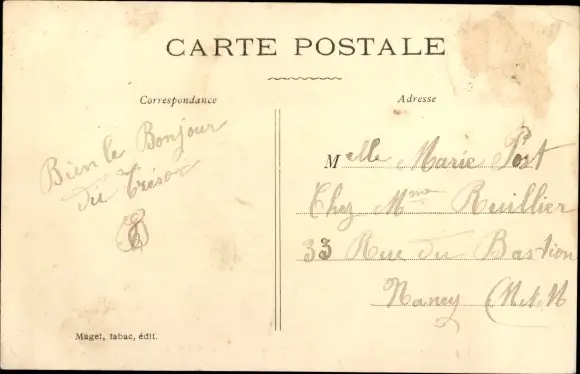 CARTE POSTALE
Correspondance
Adresse
Bien le Bonjour
du Trésor
Melle Marie Post
Chez Mme Ruillier
33 Rue du Bastion
Nancy (M.&M
Maget, tabac, édit.